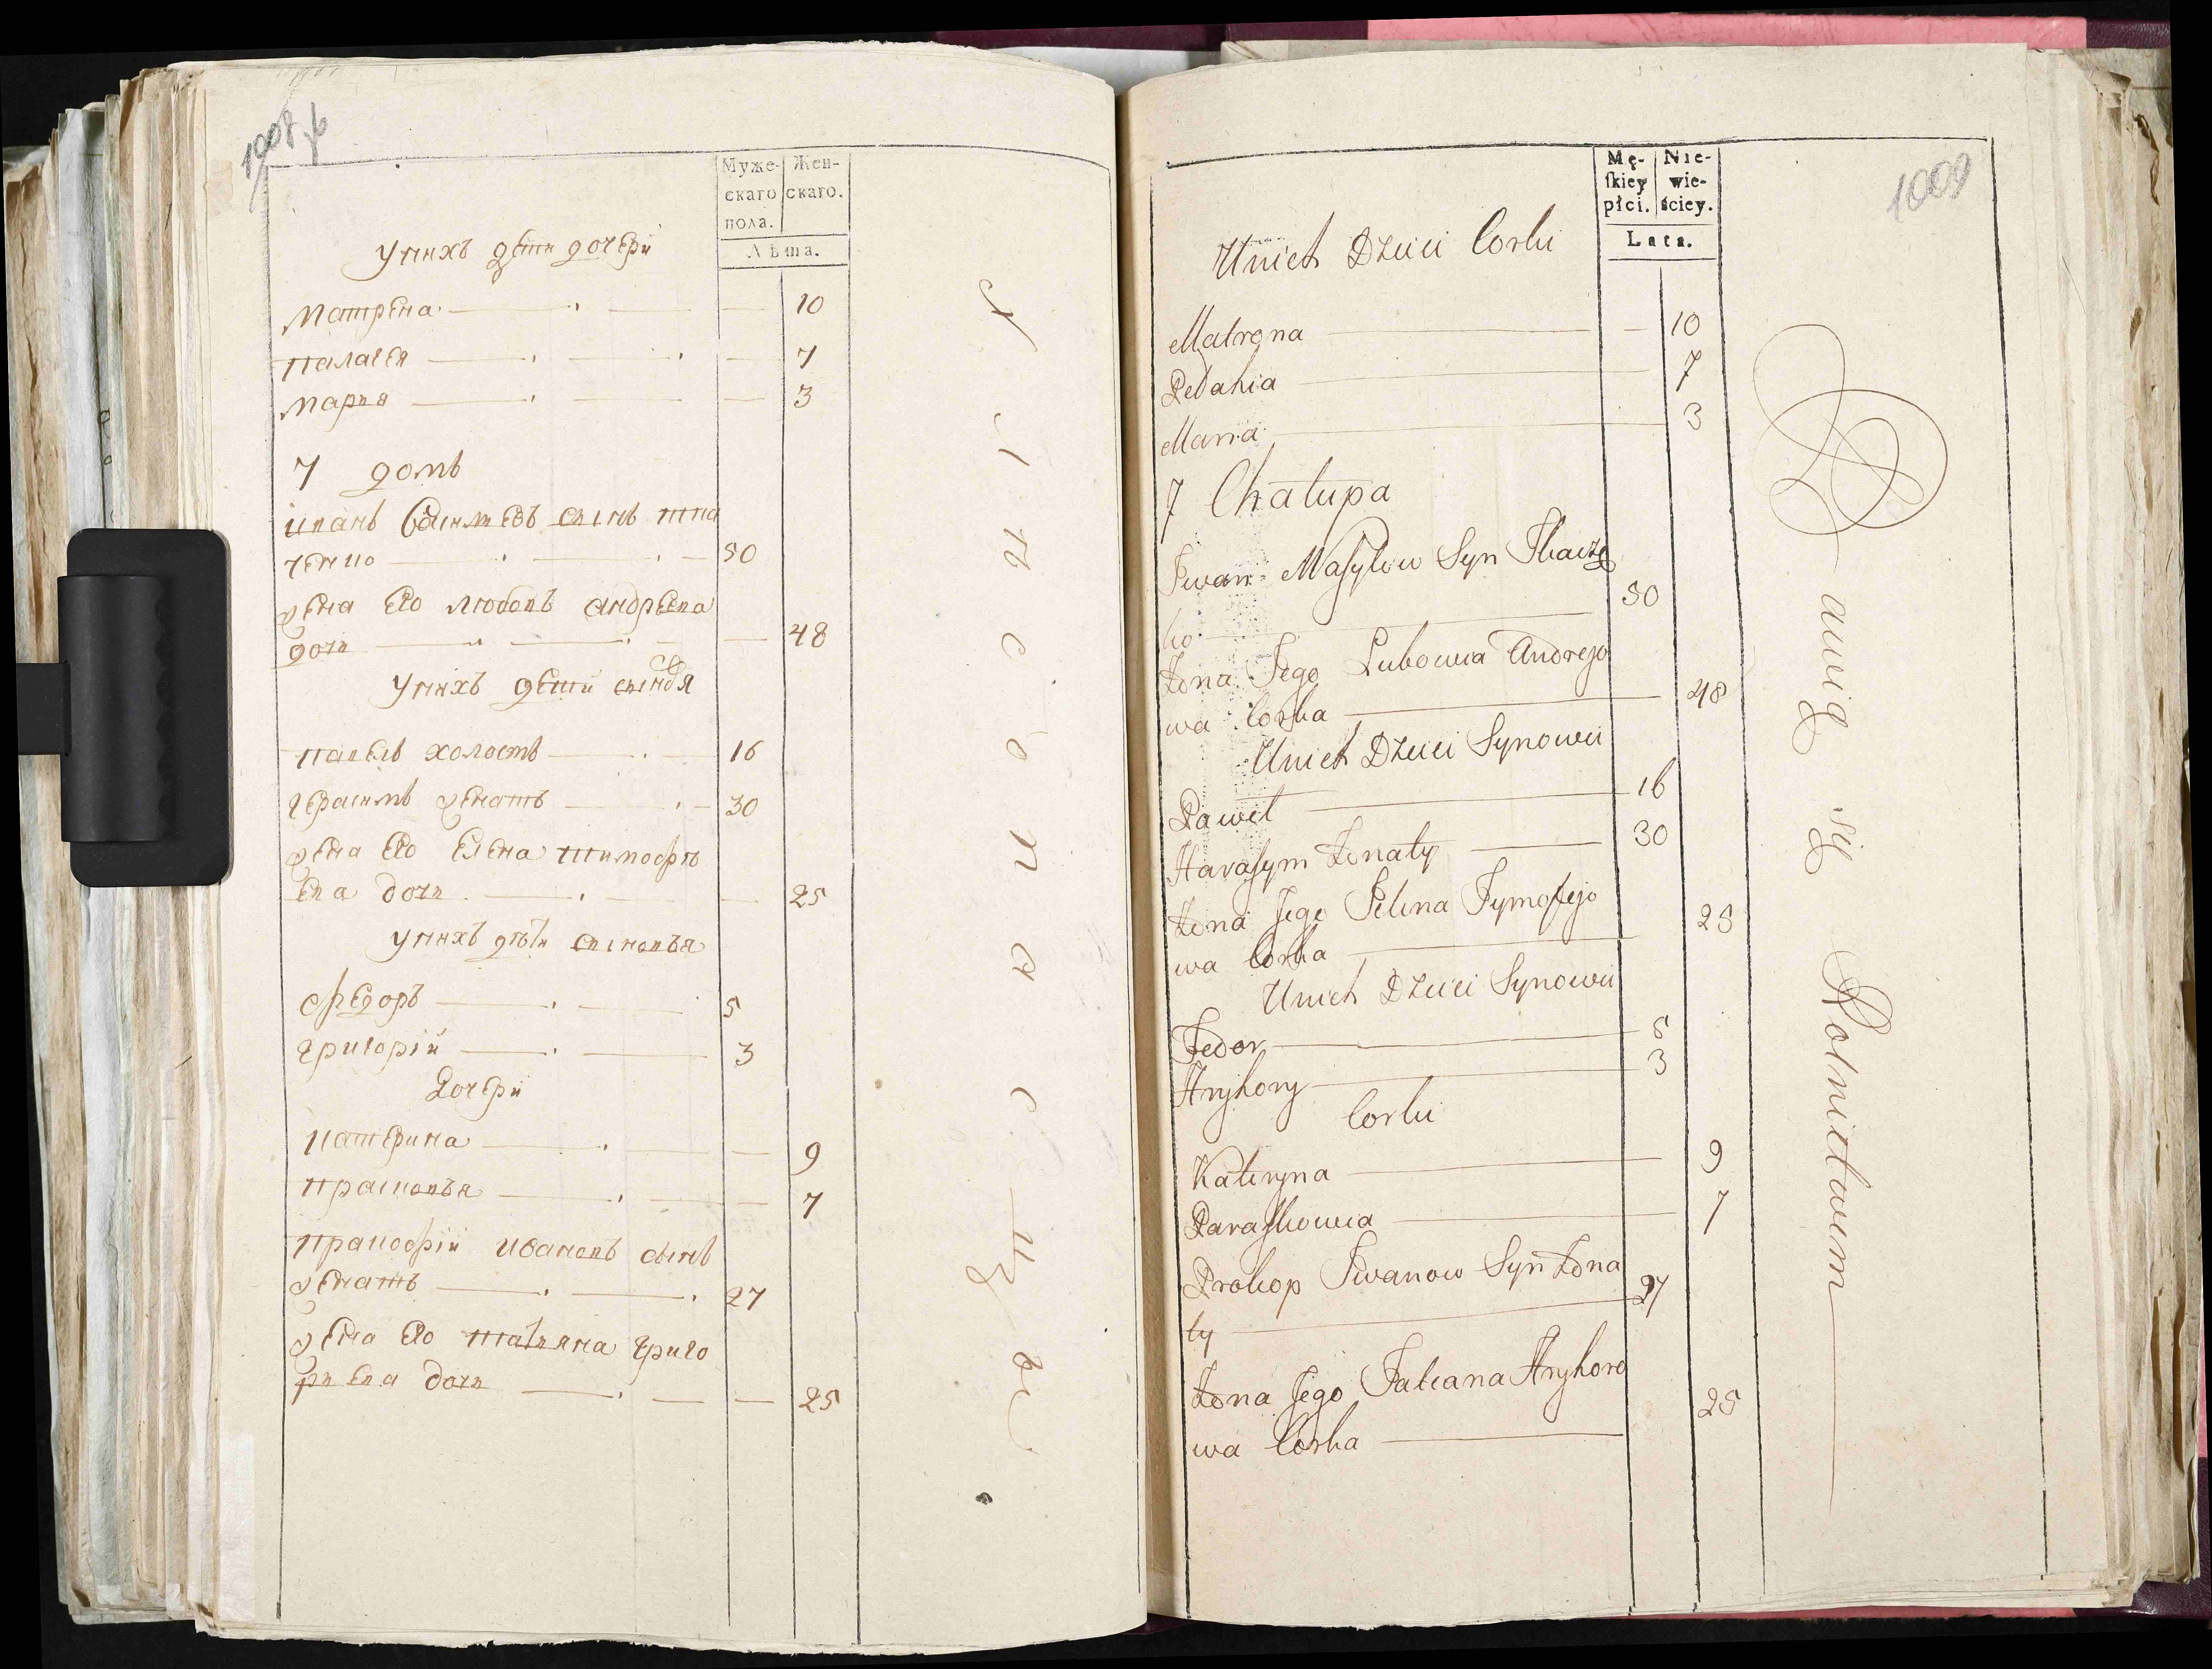 1008 зв
Муже-
скаго
пола.
Жен-
скаго.
Лѣта.
У нихъ дети дочери
Матрена 10
Палагея 7
Мария 3
7 домъ
Иванъ Васильевъ сынъ Тка
ченко 50
жена Его Любовъ Андреева
дочь 48
У нихъ дети сыновья
Павелъ холостъ 16
Герасимъ женатъ 30
жена Его Елена Тимофѣ
ева дочь 25
У нихъ дѣти сыновья
Федоръ 5
Григорій 3
Дочери
Катерина 9
Прасковья 7
Пракофій Ивановъ сынъ
женатъ 27
жена Его Татьяна Григо
рьева дочь 25
1009
Mę-
ſkiey
płci.
Nie-
wie-
ściey.
Lata.
Unich Dzieci Corki
Matrona 10
Pelahia 7
Maria 3
7 Chałupa
Iwan Wasylow Syn Tkacze
ko 50
Żona Jego Lubowia Andrejo
wa Corka 48
Unich Dzieci Synowie
Paweł 16
Harasym Żonaty 30
Żona Jego Jelena Tymofejo
wa Corka 25
Unich Dzieci Synowie
Fedor 5
Hryhory 3
Corki
Kateryna 9
Paraskowia 7
Prokop Iwanow Syn Żona
ty 27
Żona Jego Tatiana Hryhoro
wa Corka 25
bawią się Rolnictwem